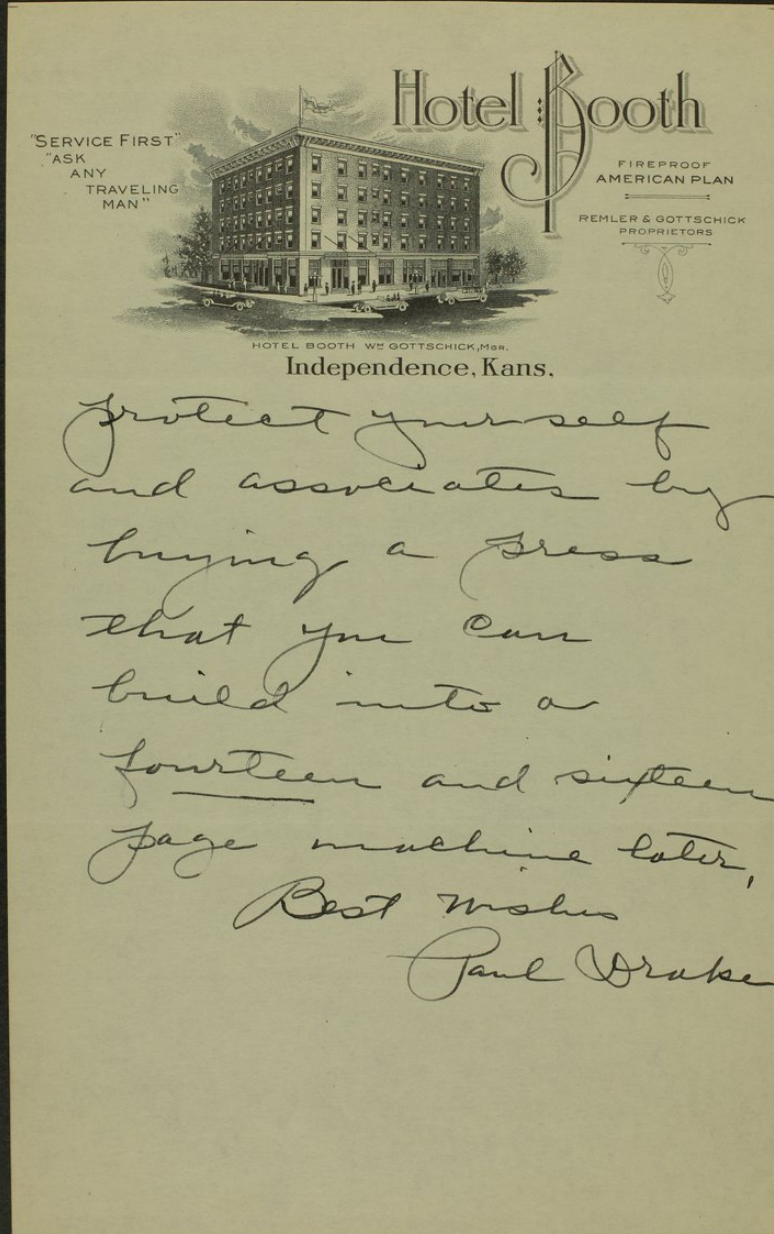 Hotel Booth
"SERVICE FIRST"
"ASK
ANY
TRAVELING
MAN"
FIREPROOF
AMERICAN PLAN
REMLER & GOTTSCHICK
PROPRIETORS
HOTEL BOOTH WM GOTTSCHICK, MGR.
Independence, Kans.
protect yourself
and associates by
buying a press
that you can
build into a
fourteen and sixteen
page machine later,
Best Wishes
Paul Drake